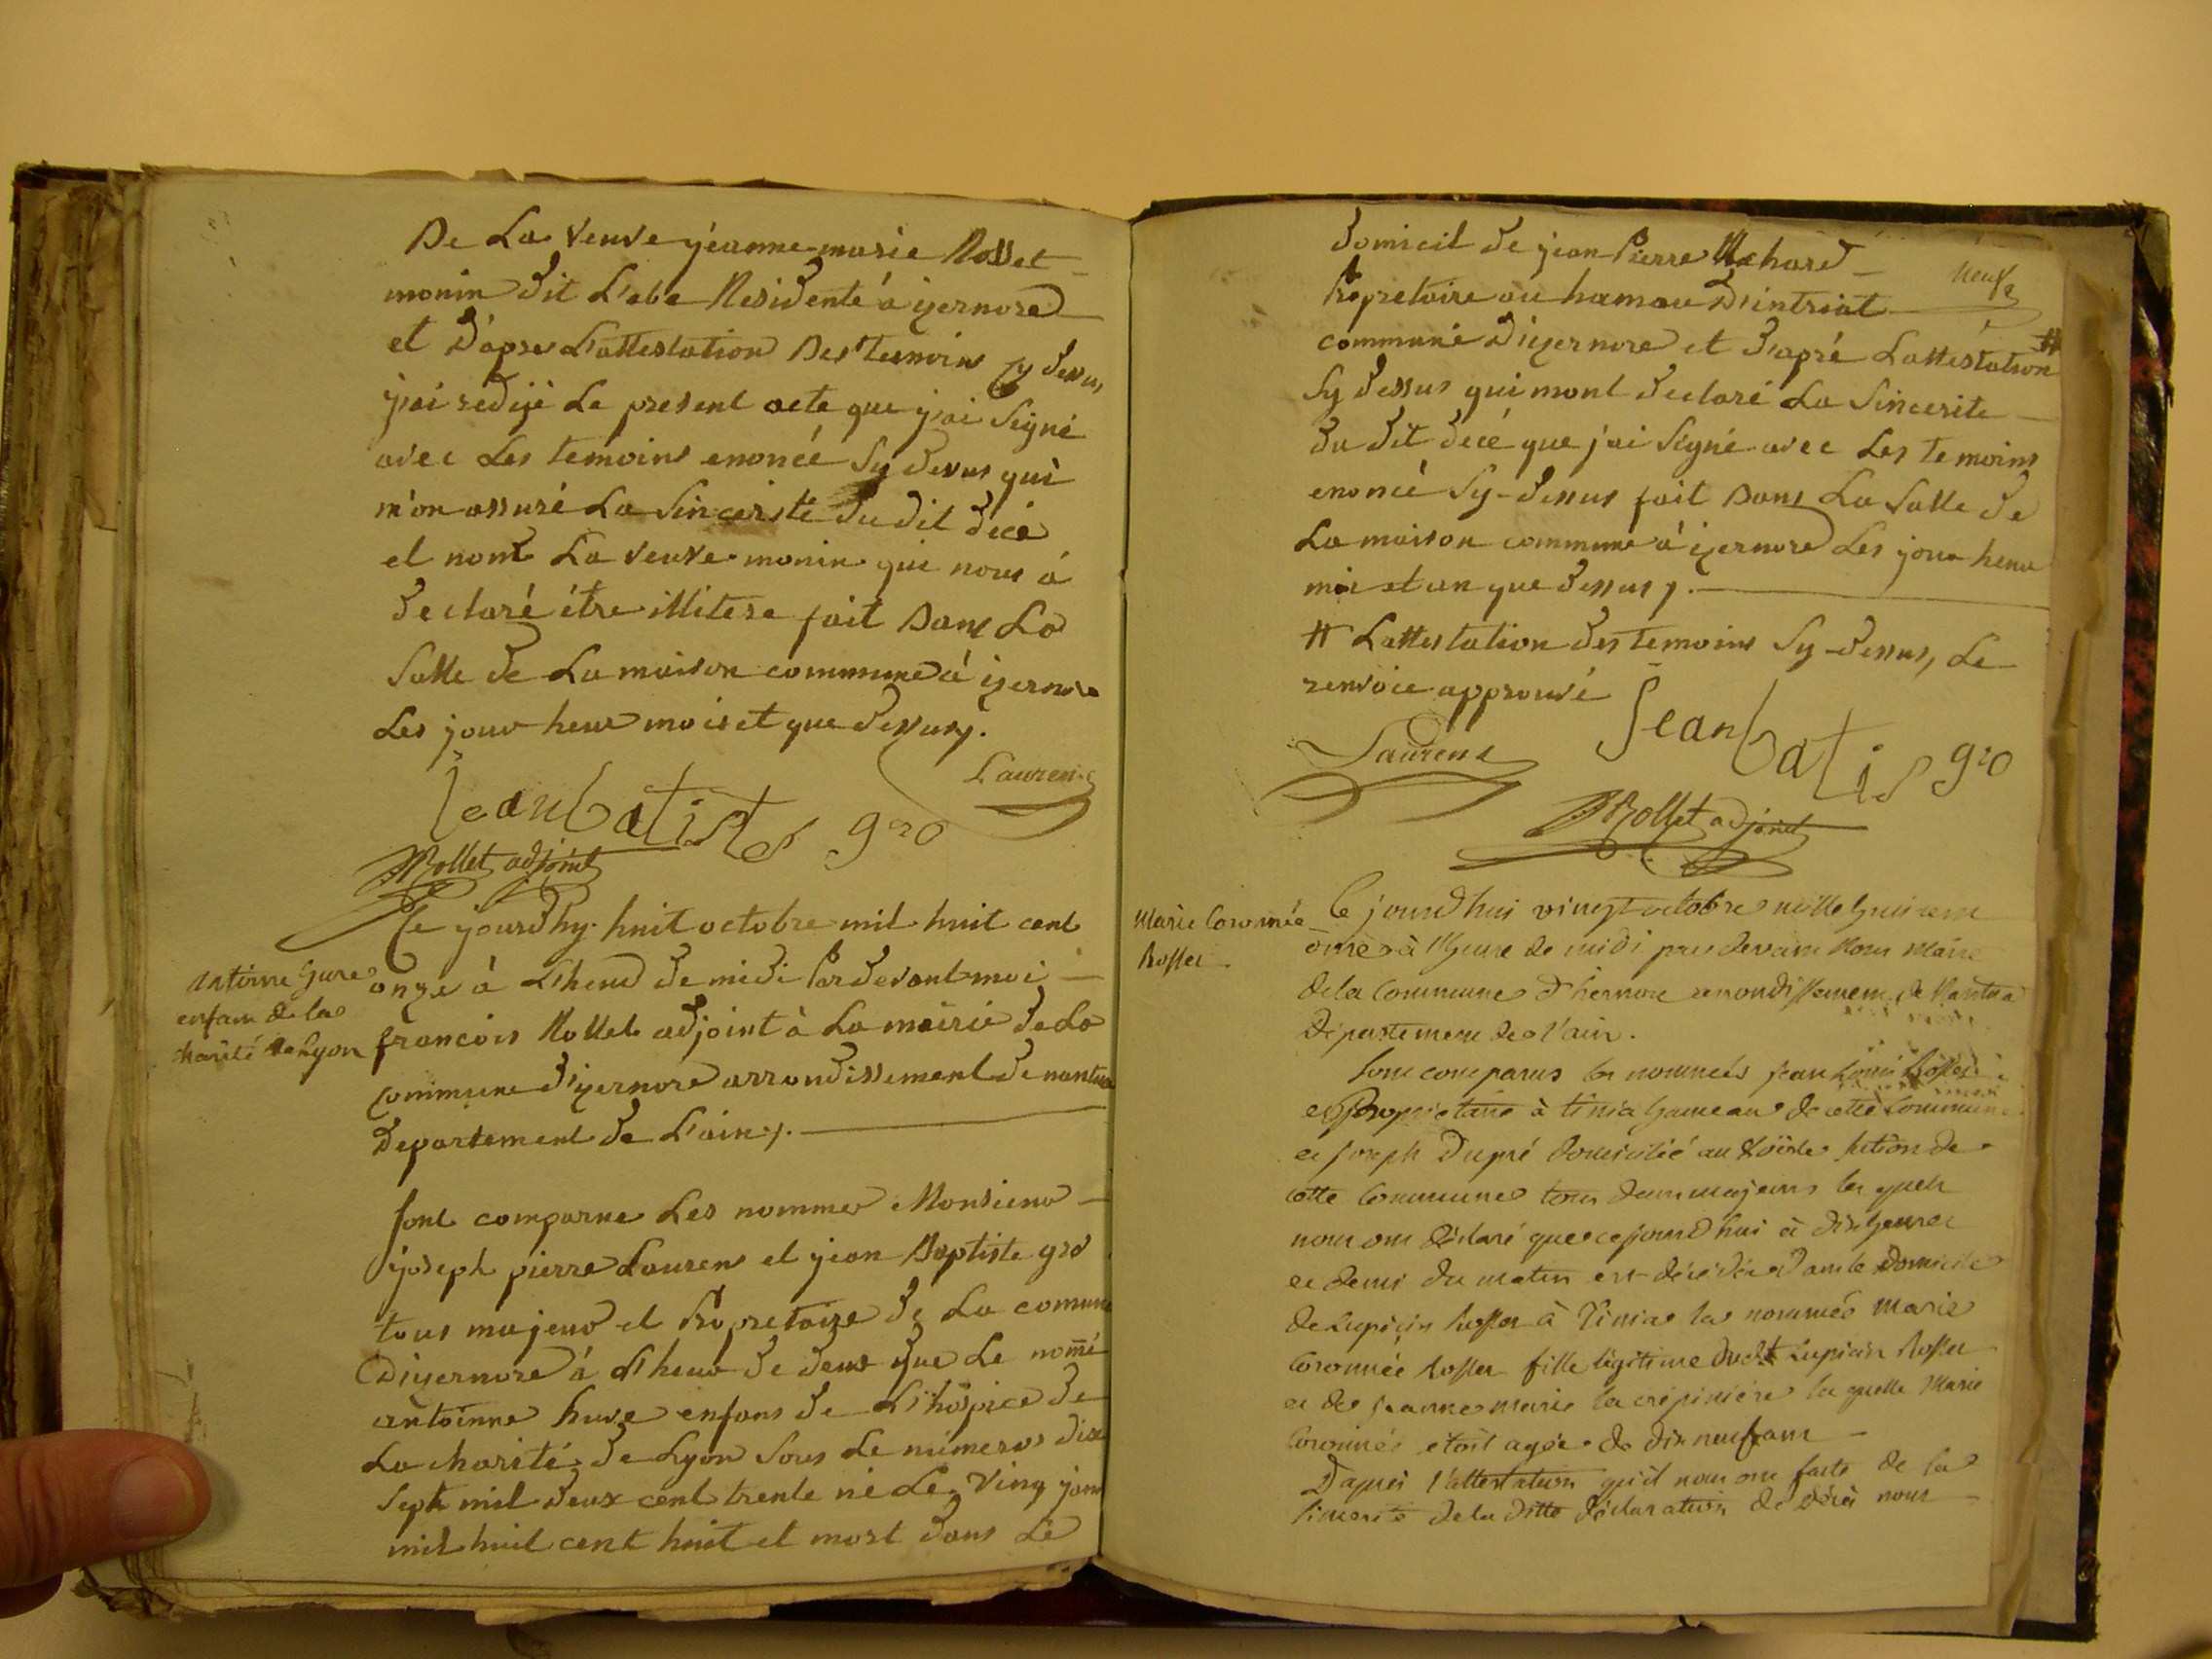 De La veuve yéanne-marie Rosset
monin dit L'abe Residente à izernore
et D'apre L'attestation Des Temoins Cy dessus
j'ai redijé Le present acte que j'ai Signé
avec Les temoins enoncé Sy dessus qui
m'on assuré La Sincerité du dit decé
et nont La veuve monin qui nous à
declaré étre illitere fait Dans La
Salle de La maison commune à izernore
Les jour heur mois et que dessus.
Laurens
Jean batiste gro
Rollet adjoint
Ce jourdhy huit octobre mil huit cent
antoinne hure
enfant de la
charité de Lyon
onze à L'heur de midi Pardevant moi
francois Rollet adjoint à La mairie de La
commune d'izernore arrondissement de nantua
Departement de L'ain.
sont comparue Les nommer Monsieur
joseph pierre Laurens et jean Baptiste gro
tous majeur et Propretaire de La comune
D'izernore à L'heur de deux que Le nomé
antoinne hure enfans de L'hospice de
La charité de Lyon Sous Le numeros dix
Sept mil deux cent trente né Le ving
mil huit cent huit et mort dans Le
neuf
domicil de jean Pierre
Propretaire au hamau D'intriat
commune D'izernore et d'apré Lattestation #
Sy dessus qui mont declaré La Sincerite
du dit decé que j'ai Signé avec Les temoins
enoncé Sy-dessus fait Dans La Salle de
La maison commune à izernore Les jour heur
moi et an que dessus.
# Lattestation des temoins Sy-dessus, Le
renvoie approuvé
Jean batis gro
Laurens
Rollet adjoint
Marie Coronnée
Rosset
Ce jourd'hui vingt octobre mille huit cent
onze à l'heure de midi par devant Nous Maire
de la Commune d'hernore arrondissement de Nantua
Département de l'ain.
Sont comparus les nommés Jean Louis Rosset
propriétaire à tinia hameau de cette Commune
et Joseph Dupré Domicilié au Section de
cette Commune tous deux majeurs les quels
nous ont déclaré que cejourd'hui à dix heures
et demi du matin est décédée dans le Domicile
de Lupicin Rosset à Tinia la nommée Marie
Coronnée Rosset fille légitime dudt Lupicin Rosset
et de Jeanne Marie la crépinière la quelle Marie
Coronnée étoit agée de dix neuf ans
D'après l'attestation qu'il nous ont faite de la
sincerité de la ditte déclaration de décès nous